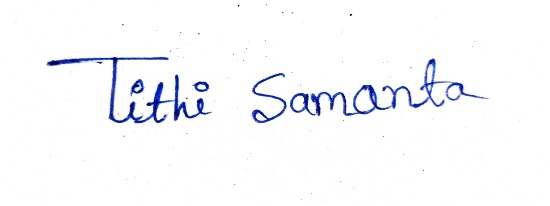 Tithi Samanta